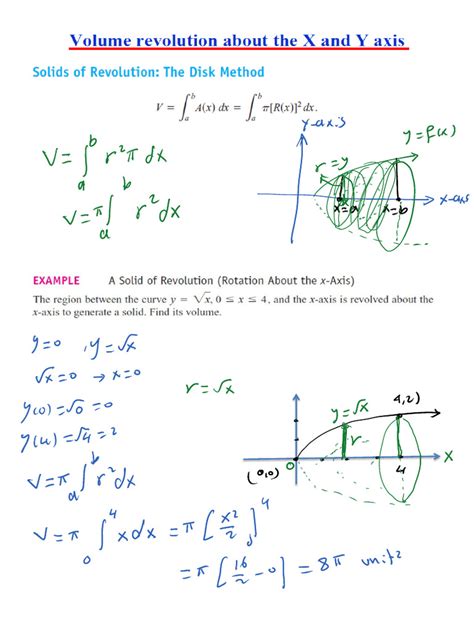 Volume revolution about the X and Y axis
Solids of Revolution: The Disk Method
V = ∫_a^b A(x) dx = ∫_a^b π[R(x)]² dx.
y-axis
y = f(x)
r = y
V = ∫_a^b r²π dx
V = π∫_a^b r² dx
x=a
x=b
x-axis
EXAMPLE A Solid of Revolution (Rotation About the x-Axis)
The region between the curve y = √x, 0 ≤ x ≤ 4, and the x-axis is revolved about the
x-axis to generate a solid. Find its volume.
y=0 , y=√x
√x=0 → x=0
r=√x
y(0)=√0=0
y(4)=√4=2
4,2)
y=√x
r
X
0
4
(0,0)
V=π∫_a^b r²dx
V=π ∫_0^4 xdx = π[x²/2]_0^4
=π[16/2 -0] = 8π unit²